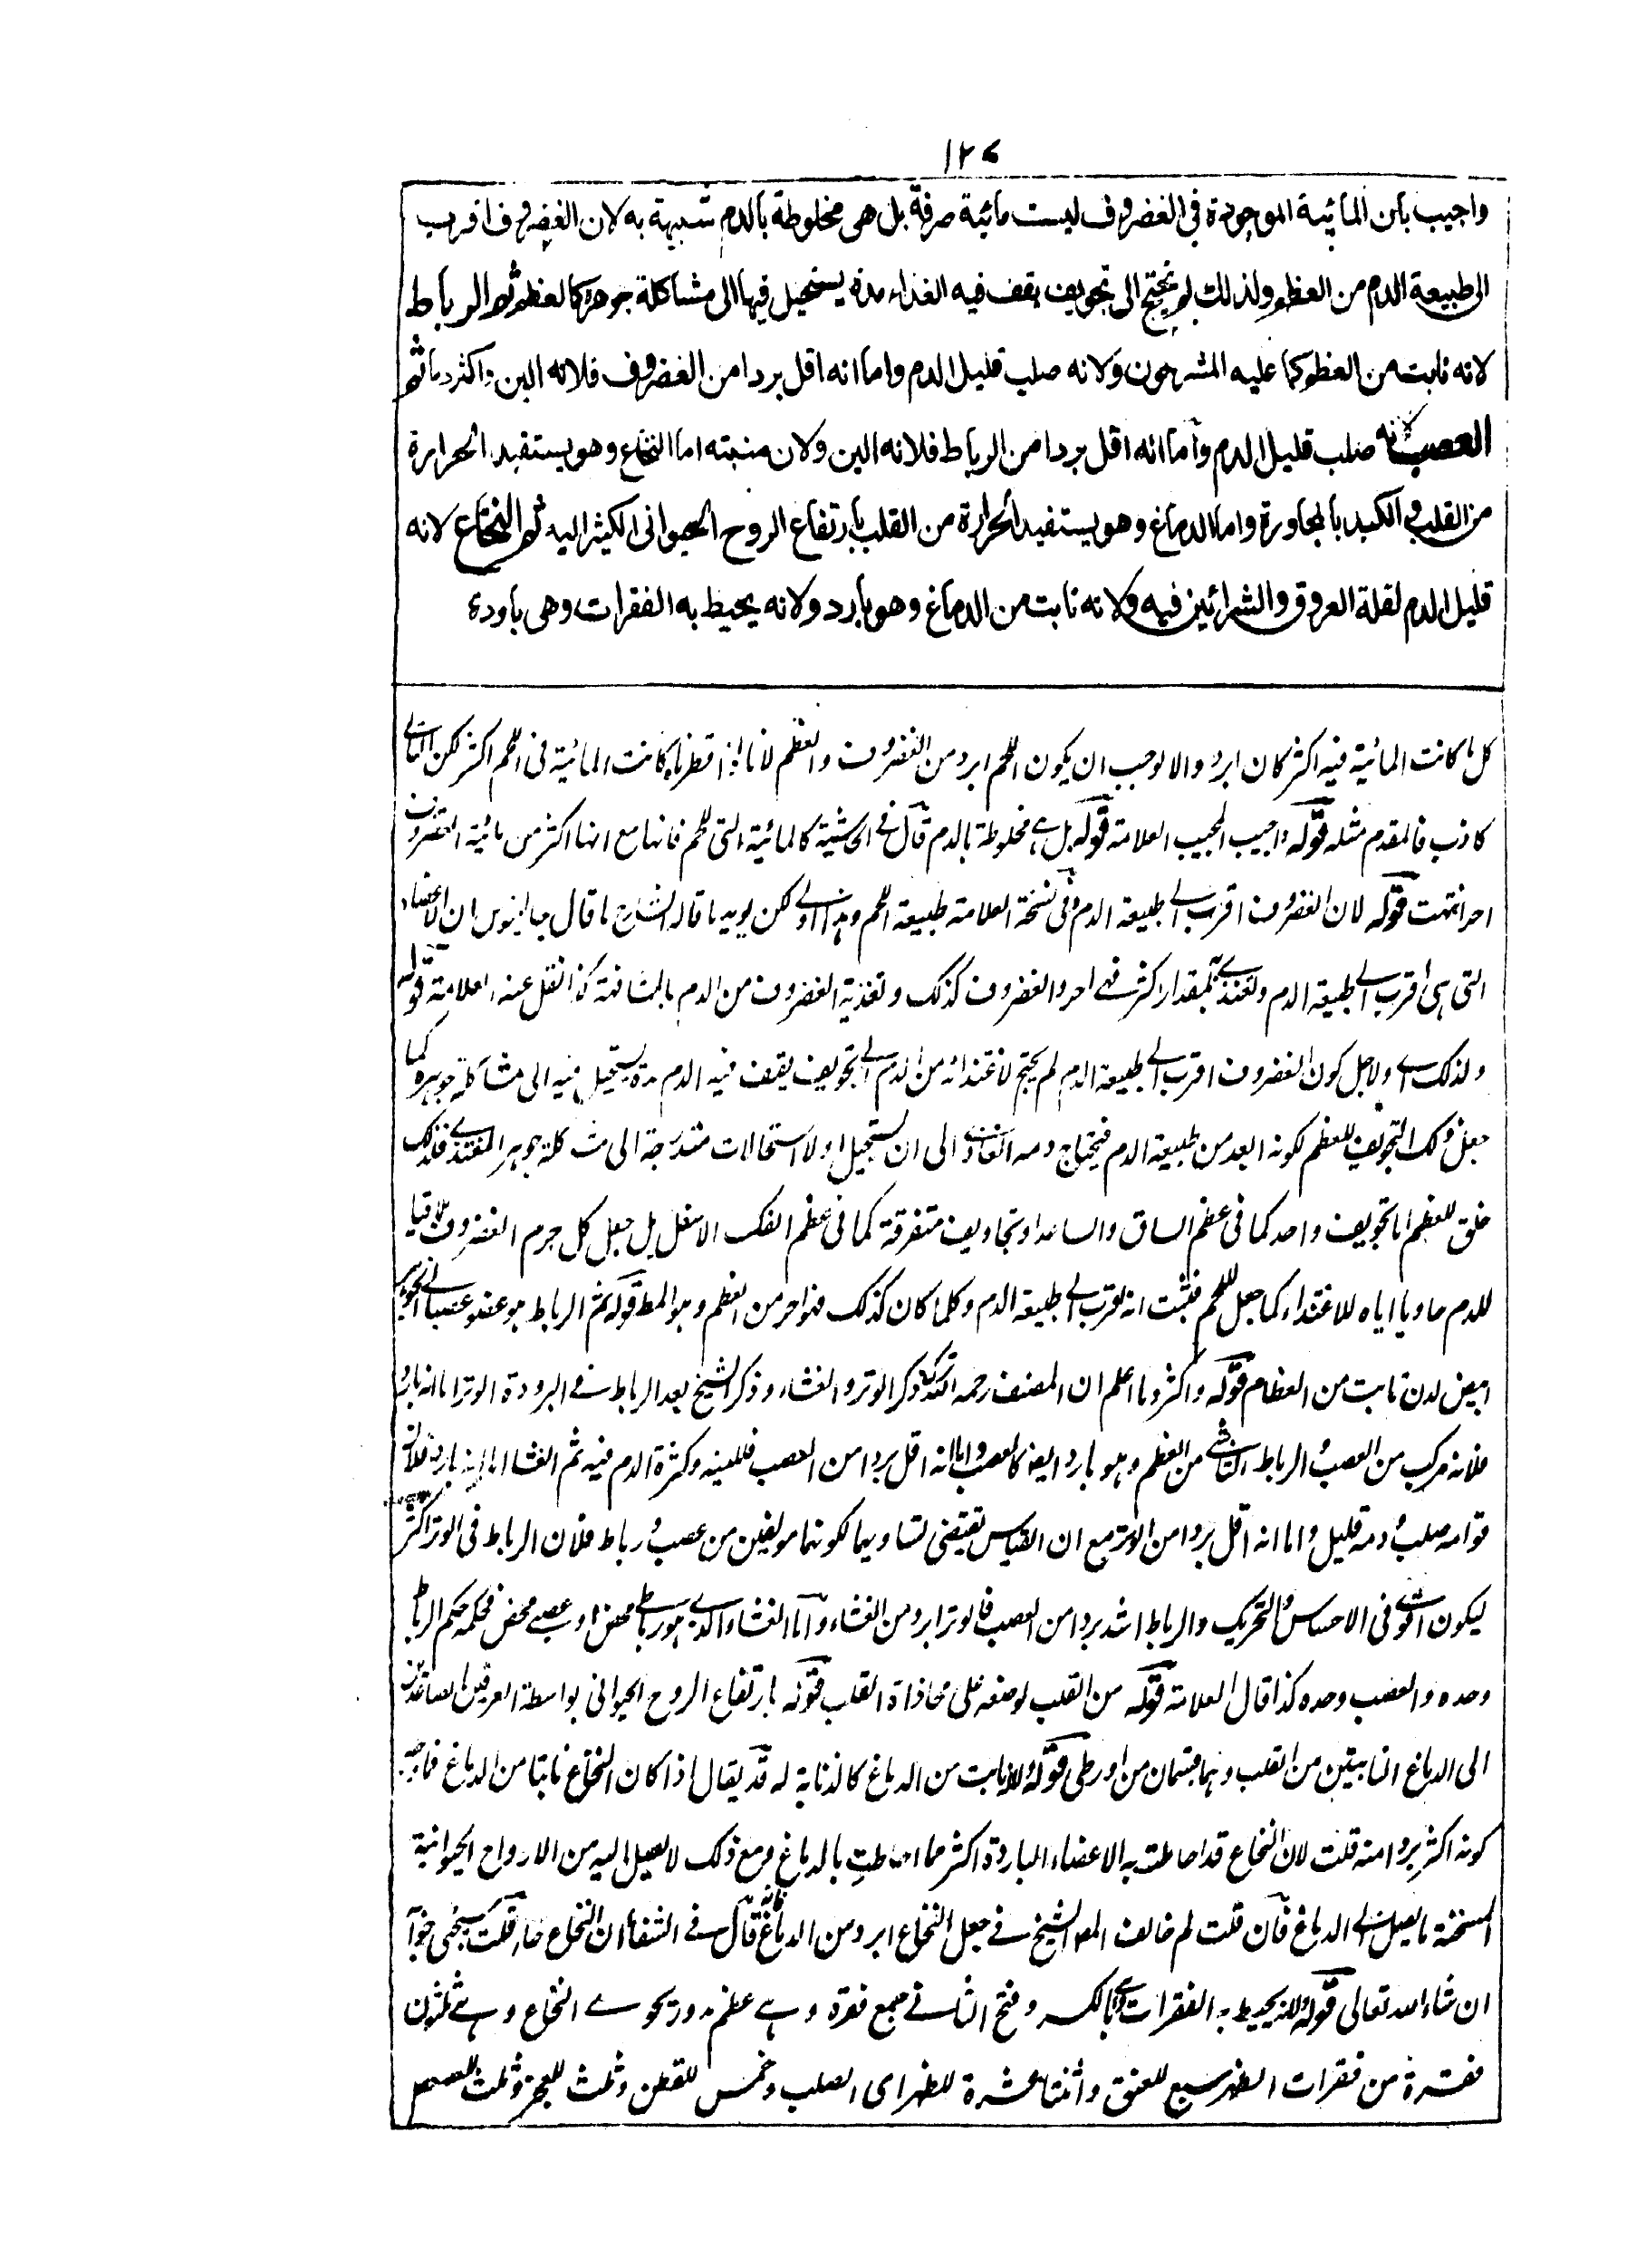 ١٢٦
واجيب بان المائية الموجودة فى الغضروف ليست مائية صرفة بل هى مخلوطة بالدم شبيهة به لان الغضروف اقرب
الى طبيعة الدم من العظم ولذلك لم يحتج الى تجويف يقف فيه الغذاء مدة يستحيل فيها الى مشاكلة جوهره كالعظم ثم الرباط
لانه نابت من العظم كما عليه المشرحون ولانه صلب قليل الدم واما انه اقل بردا من الغضروف فلانه الين واكثر دما ثم
العصب لانه صلب قليل الدم واما انه اقل بردا من الرباط فلانه الين ولان منبته اما النخاع وهو يستفيد الحرارة
من القلب والكبد بالمجاورة واما الدماغ وهو يستفيد الحرارة من القلب بارتفاع الروح الحيوانى الكثير اليه ثم النخاع لانه
قليل الدم لقلة العروق والشرائين فيه ولانه نابت من الدماغ وهو بارد ولانه يحيط به الفقرات وهى باردة
كل ما كانت المائية فيه اكثر كان ابرد والا لوجب ان يكون اللحم ابرد من الغضروف والعظم لانا اذا قطرناه كانت المائية فى اللحم اكثر لكن التالى
كاذب فالمقدم مثله قوله واجيب المجيب العلامة قوله بل هى مخلوطة بالدم قال فى الحاشية كالمائية التى للحم فانها مع انها اكثر من مائية الغضروف
احر انتهت قوله لان الغضروف اقرب الى طبيعة الدم وفى نسخة العلامة طبيعة اللحم وهذا اولى لكن يويد ما قاله الشارح ما قال جالينوس ان الاعضاء
التى هى اقرب الى طبيعة الدم وتغتذى بمقدار اكثر فهى احر والغضروف كذلك وتغذية الغضروف من الدم بالمشافهة كذا نقل عنه العلامة قوله
ولذلك اى ولاجل كون الغضروف اقرب الى طبيعة الدم لم يحتج لاغتذائه من الدم الى تجويف يقف فيه الدم مدة يستحيل فيه الى مشاكلة جوهره كما
جعل ذلك التجويف للعظم لكونه ابعد من طبيعة الدم فيحتاج دمه الغاذى الى ان يستحيل اولا استحالات متدرجة الى مشاكلة جوهر المغتذى فلذلك
خلق للعظم اما تجويف واحد كما فى عظم الساق والساعد او تجاويف متفرقة كما فى عظم الفك الاسفل بل جعل كل جرم الغضروف ملاقيا
للدم حاويا اياه للاغتذاء كما جعل للحم فثبت انه اقرب الى طبيعة الدم وكلما كان كذلك فهو احر من العظم وهو المط قوله ثم الرباط هو عضو عصبانى الجوهر
ابيض لدن نابت من العظام قوله واكثر دما اعلم ان المصنف رحمه الله ترك ذكر الوتر والغشاء وذكر الشيخ بعد الرباط فى البرودة الوتر اما انه بارد
فلانه مركب من العصب والرباط الناشى من العظم وهو بارد ايضا كالعصب واما انه اقل بردا من العصب فللينه وكثرة الدم فيه ثم الغشاء اما انه بارد فلانه
قوامه صلب ودمه قليل واما انه اقل بردا من الوتر مع ان القياس يقتضى تساويهما لكونهما مولفين من عصب ورباط فلان الرباط فى الوتر اكثر
ليكون اقوى فى الاحساس والتحريك والرباط اشد بردا من العصب فالوتر ابرد من الغشاء واما الغشاء الذى هو رباطى محض او عصبى محض فحكمه حكم الرباط
وحده والعصب وحده كذا قال العلامة قوله من القلب لوضعه على محاذاة القلب قوله بارتفاع الروح الحيوانى بواسطة العرقين الصاعدين
الى الدماغ النابتين من القلب وهما قسمان من اورطى قوله ولانه نابت من الدماغ كالذنابة له قد يقال اذا كان النخاع نابتا من الدماغ فما وجه
كونه اكثر بردا منه قلت لان النخاع قد احاطت به الاعضاء الباردة اكثر مما احاطت بالدماغ ومع ذلك لا يصل اليه من الارواح الحيوانية
المسخنة ما يصل الى الدماغ فان قلت لم خالف المص الشيخ فى جعل النخاع ابرد من الدماغ فانه قال فى الشفاء ان النخاع حار قلت سيجئ جوابه
ان شاء الله تعالى قوله ولانه يحيط به الفقرات هى بالكسر وفتح الثانى جمع فقرة وهى عظم مدور يحوى النخاع وهى ثلثون
فقرة من فقرات الظهر سبع للعنق واثنتا عشرة للظهر اى الصلب وخمس للقطن وثلث للعجز وثلث للعصعص